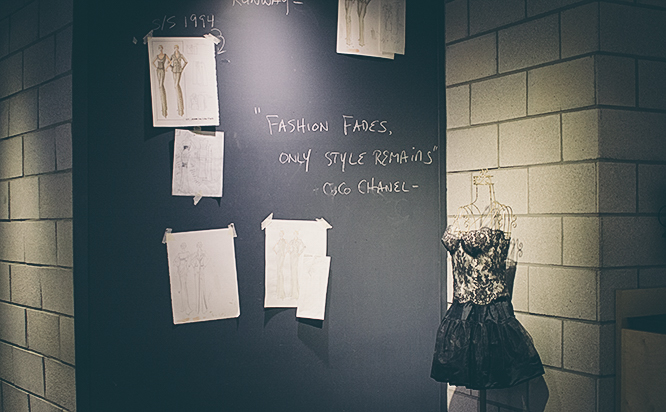 RUNWAY-
S/S 1994
"FASHION FADES,
ONLY STYLE REMAINS"
-COCO CHANEL-